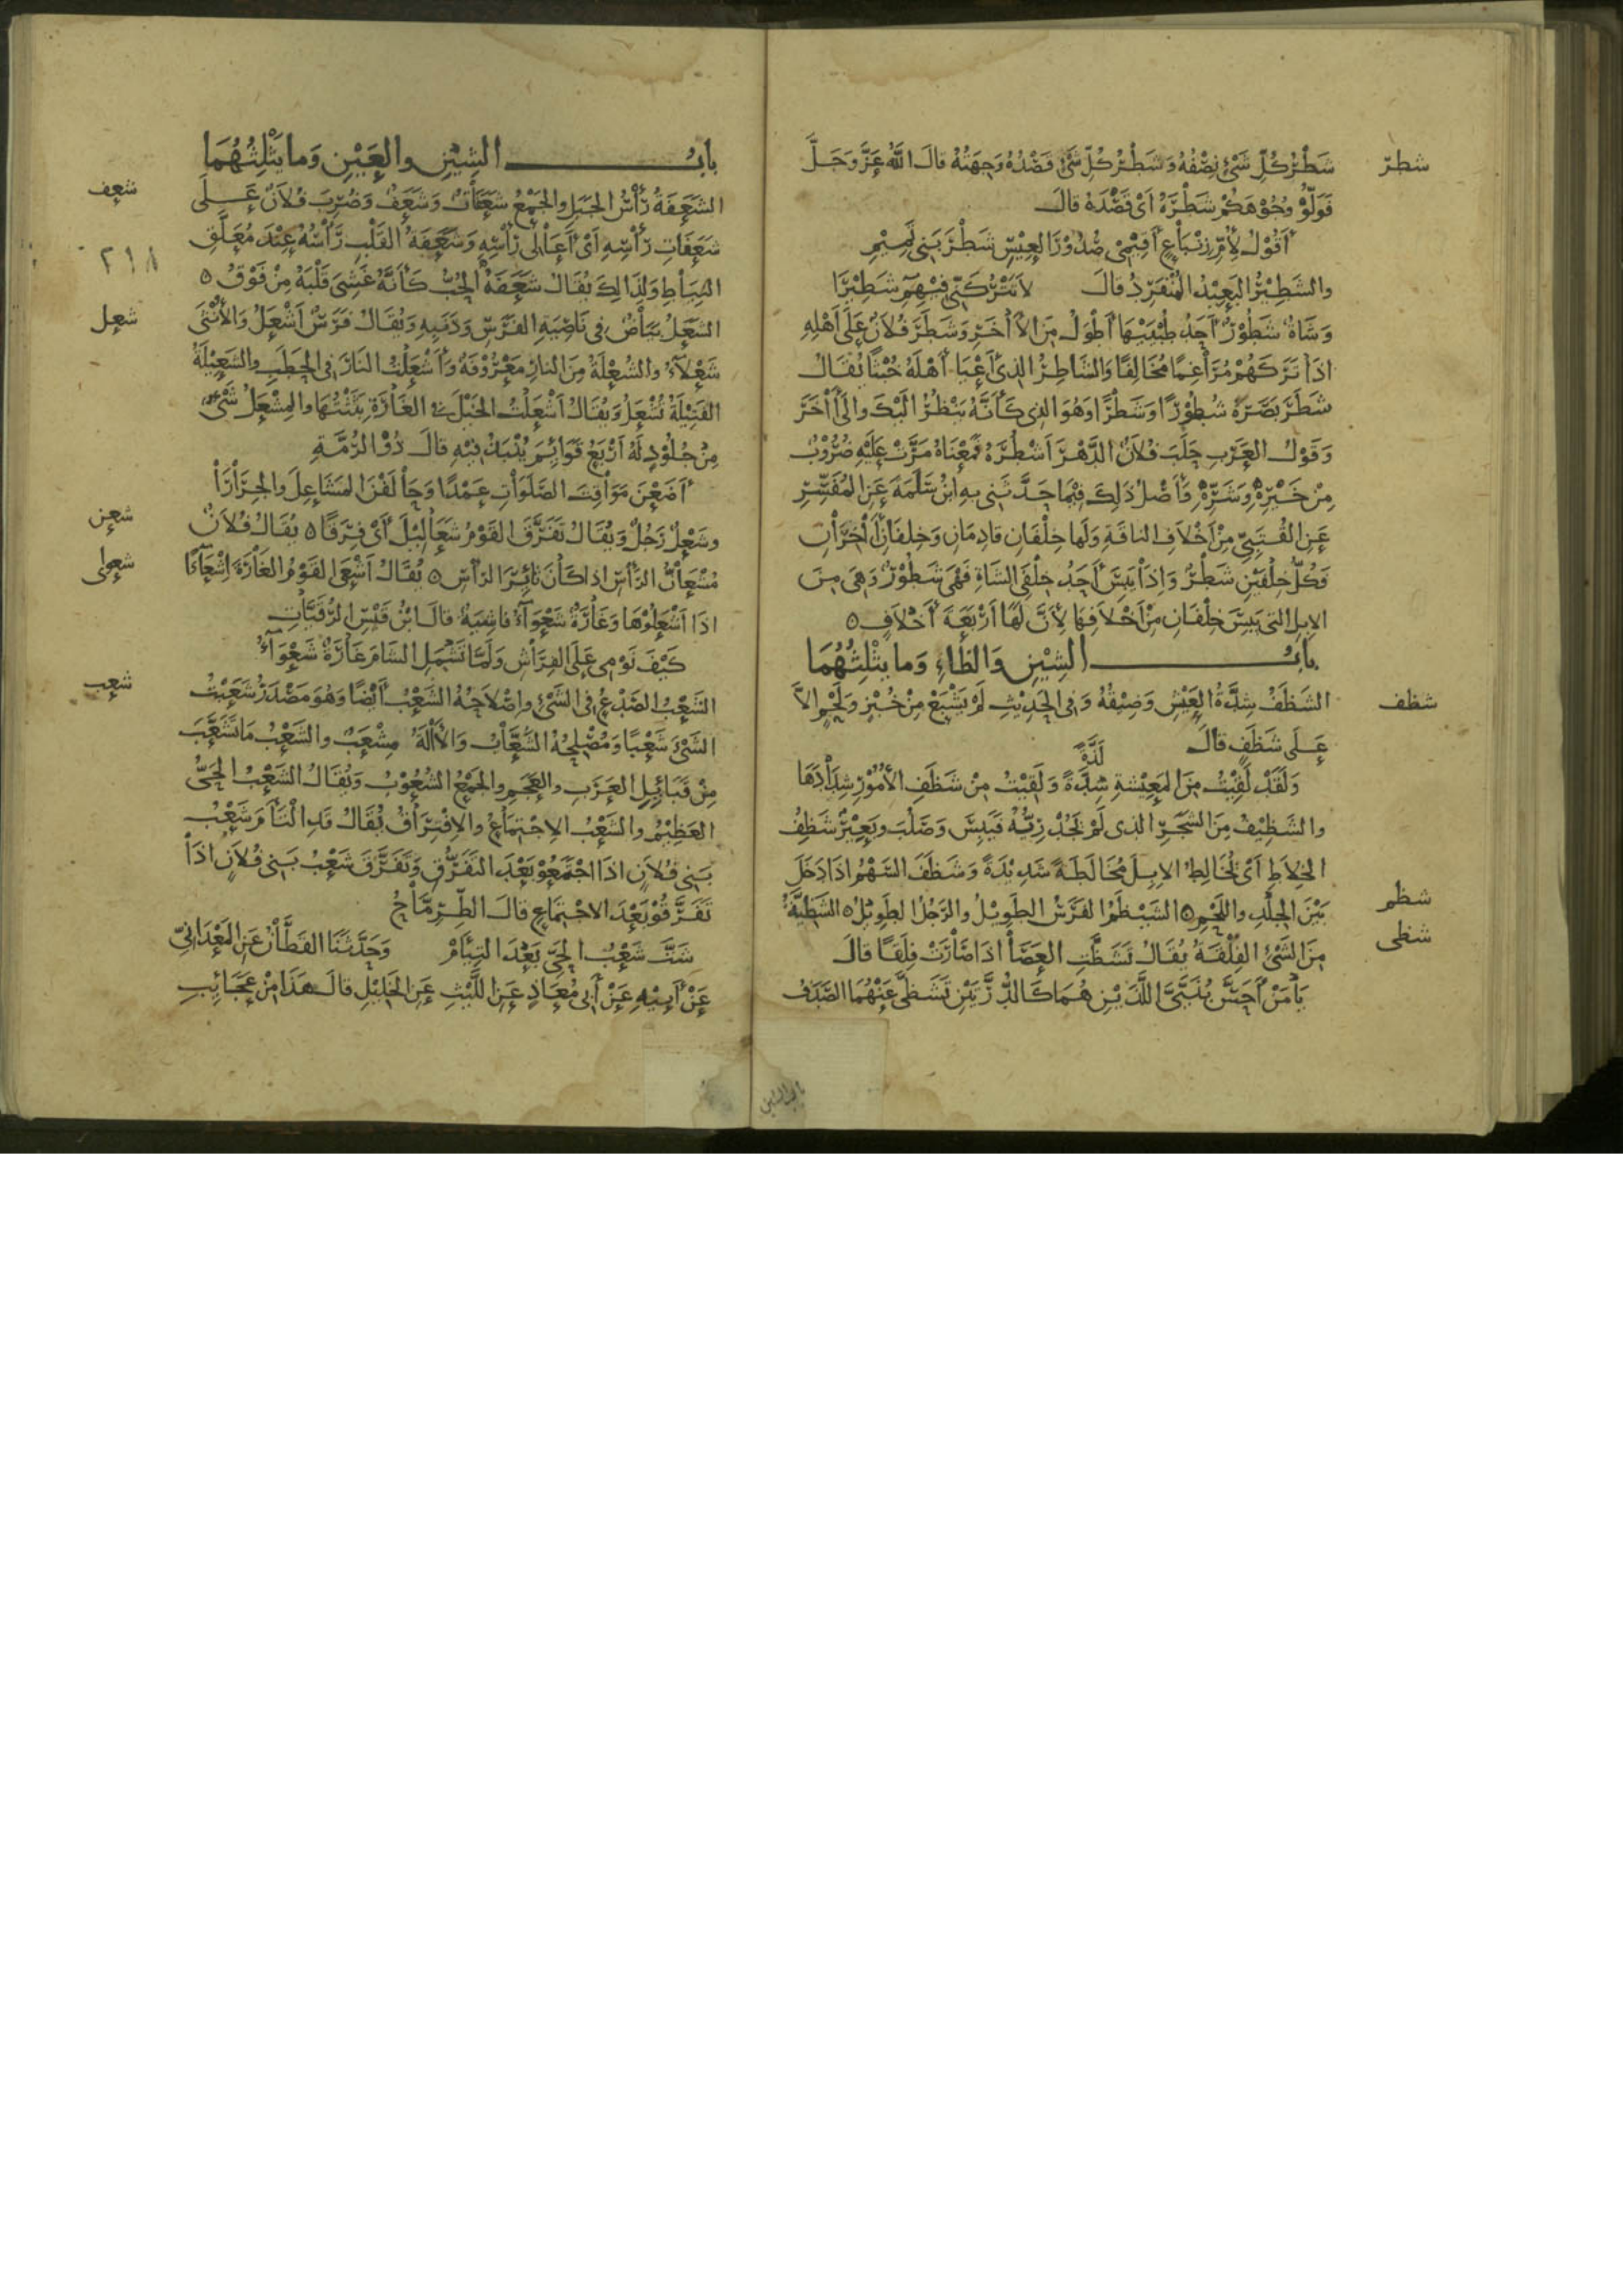 شطر
شَطْرُ كُلِّ شَيْءٍ نِصْفُهُ وَشَطْرُ كُلِّ شَيْءٍ قَصْدُهُ وَجِهَتُهُ قالَ اللّٰهُ عَزَّ وَجَلَّ
فَوَلُّوْ وُجُوْهَكُمْ شَطْرَهُ اَيْ قَصْدَهُ قالَ
أَقُوْلُ لِأُمِّ زِنْبَاعٍ أَقِيْمِي صُدُوْرَ العِيْسِ شَطْرَ بَنِي تَمِيْمِ
والشَّطِيْرُ البَعِيْدُ المُنْفَرِدُ قالَ لاَ تَتْرُكَنِّي فِيْهِمِ شَطِيْرَا
وَشَاةٌ شَطُوْرٌ أَحَدُ طُبْيَيْهَا أَطْوَلُ مِنَ الاٰخَرِ وَشَطَرَ فُلاَنٌ عَلَى أَهْلِهِ
اذَا تَرَكَهُمْ مُرَاغِمًا مُخَالِفًا وَالشَّاطِرُ الذِي أَعْيَا أَهْلَهُ خُبْثًا يُقَالُ
شَطَرَ بَصَرُهُ شُطُوْرًا وَشَطْرًا وَهُوَ الذِي كَأَنَّهُ يَنْظُرُ الَيْكَ وَالَى اٰخَرَ
وَقَوْلُ العَرَبِ حَلَبَ فُلاَنٌ الدَّهْرَ اَشْطُرَهُ فَمَعْنَاهُ مَرَّتْ عَلَيْهِ ضُرُوْبٌ
مِنْ خَيْرِهِ وَشَرِّهِ وَأَصْلُ ذَلِكَ فِيْمَا حَدَّثَنِي بِهِ ابْنُ سَلَمَةَ عَنِ المُفَسِّرِ
عَنِ القُتَبِيِّ مِنْ أَخْلاَفِ الناقَةِ وَلَهَا خِلْفَانِ قادِمَانِ وَخِلْفَانِ اٰخَرَانِ
وَكُلُّ خِلْفَيْنِ شَطْرٌ وَاِذَا يَبِسَ أَحَدُ خِلْفَيِ الشَاةِ فَهْيَ شَطُوْرٌ وَهِيَ مِنَ
الابِلِ التِي يَبِسَ خِلْفَانِ مِنْ أَخْلاَفِهَا لأَنَّ لَهَا أَرْبَعَةَ أَخْلاَفٍ ٥
بابُ الشِيْنِ وَالظَاءِ وَما يَثْلِثُهُمَا
شظف
الشَظَفُ شِدَّةُ العَيْشِ وَضِيْقُهُ وَفِي الحَدِيْثِ لَمْ يَشْبَعْ مِنْ خُبْزٍ وَلَحْمٍ الاَّ
عَلَى شَظَفٍ قالَ
لَذَّةً
وَلَقَدْ لَقِيْتُ مِنَ المَعِيْشةِ شِدَّةً وَلَقِيْتُ مِنْ شَظَفِ الأُمُوْرِ شِدَادَهَا
والشَظِيْفُ مِنَ الشَجَرِ الذي لَمْ يَجُدْ رِيُّهُ فَيَبِسَ وَصَلُبَ وبَعِيْرٌ شَظِفُ
الخِلاَطِ اَيْ يُخَالِطُ الابِلَ مُخَالَطَةً شَدِيْدَةً وَشَظَفَ السَهْمُ اذَا دَخَلَ
شظم
بَيْنَ الجِلْدِ واللَحْمِ ٥ الشَيْظَمُ الفَرَسُ الطَوِيْلُ والرَجُلُ الطَوِيْلُ ٥ الشَظِيَّةُ
شظى
مِنَ الشَيْءِ الفِلْقَةُ يُقَالُ تَشَظَّتِ العَصَا اذَا صَارَتْ فِلَقًا قالَ
يَا مَنْ أَحَسَّ بُنَيَّيَّ اللَّذَيْنِ هُمَا كَالدُّرَّتَيْنِ تَشَظَّى عَنْهُمَا الصَدَفُ
بابُ الشِيْنِ والعَيْنِ وَما يَثْلِثُهُمَا
شعف
الشَعَفَةُ رَأْسُ الجَبَلِ والجَمْعُ شَعَفَاتٌ وَشَعَفٌ وَضُرِبَ فُلاَنٌ عَلَى
٢١٨
شَعَفَاتِ رَأْسِهِ اَيْ أَعَالِي رَأْسِهِ وَشَعَفَةُ القَلْبِ رَأْسُهُ عِنْدَ مُعَلَّقِ
النِيَاطِ وَلِذَالِكَ يُقَالُ شَعَفَهُ الحُبُّ كَأَنَّهُ غَشِيَ قَلْبَهُ مِنْ فَوْقُ ٥
شعل
الشَعَلُ بَيَاضٌ فِي نَاصِيَةِ الفَرَسِ وَذَنَبِهِ وَيُقَالُ فَرَسٌ أَشْعَلُ وَالأُنْثَى
شَعْلاَءُ والشُعْلَةُ مِنَ النارِ مَعْرُوْفَةٌ وَأَشْعَلْتُ النَارَ فِي الحَطَبِ والشَعِيْلَةُ
الفَتِيْلَةُ تُشْعَلُ وَيُقَالُ أَشْعَلْتُ الخَيْلَ فِي الغَارَةِ بَثَثْتُهَا والمِشْعَلُ شَيْءٌ
مِنْ جُلُوْدٍ لَهُ أَرْبَعُ قَوَائِمَ يُنْبَذُ فِيْهِ قالَ ذُوْ الرُمَّةِ
أَضَعْنَ مَوَاقِتَ الصَلَوَاتِ عَمْدًا وَحَالَفْنَ المَشَاعِلَ والجِرَارَا
شعن
وشَعْلٌ رَجُلٌ وَيُقَالُ تَفَرَّقَ القَوْمُ شَعَالِيْلَ اَيْ فِرَقًا ٥ يُقَالُ فُلاَنٌ
شعوا
مُشْعَانُّ الرَأْسِ اذا كَانَ ثَائِرَ الرَأْسِ ٥ يُقَالُ اَشْعَى القَوْمُ الغَارَةَ اِشْعَاءً
اذَا اَشْعَلُوْهَا وَغَارَةٌ شَعْوَاءُ فاشِيَةٌ قالَ ابْنُ قَيْسِ الرُقَيَّاتِ
كَيْفَ نَوْمِي عَلَى الفِرَاشِ وَلَمَّا تَشْمَلِ الشَامَ غَارَةٌ شَعْوَاءُ
شعب
الشَعْبُ الصَدْعُ فِي الشَيْءِ واِصْلاَحُهُ الشَعْبُ أَيْضًا وَهُوَ مَصْدَرُ شَعَبْتُ
الشَيْءَ شَعْبًا وَمُصْلِحُهُ الشَعَّابُ وَالاٰلَةُ مِشْعَبٌ والشَعْبُ مَا تَشَعَّبَ
مِنْ قَبَائِلِ العَرَبِ والعَجَمِ والجَمْعُ الشُعُوْبُ وَيُقَالُ الشَعْبُ الحَيُّ
العَظِيْمُ والشَعْبُ الاِجْتِمَاعُ والاِفْتِرَاقُ يُقَالُ قَدِ الْتَأَمَ شَعْبُ
بَنِي فُلاَنٍ اذَا اجْتَمَعُوْ بَعْدَ التَفَرُّقِ وَتَفَرَّقَ شَعْبُ بَنِي فُلاَنٍ اذَا
تَفَرَّقُوْ بَعْدَ الاجْتِمَاعِ قالَ الطِرِمَّاحُ
شَتَّ شَعْبُ الحَيِّ بَعْدَ التِيَامْ وَحَدَّثَنَا القَطَّانُ عَنِ المَعْدَانِيِّ
عَنْ أَبِيْهِ عَنْ أَبِي مُعَاذٍ عَنِ اللَّيْثِ عَنِ الخَلِيْلِ قالَ هَذَا مِنْ عَجَائِبِ